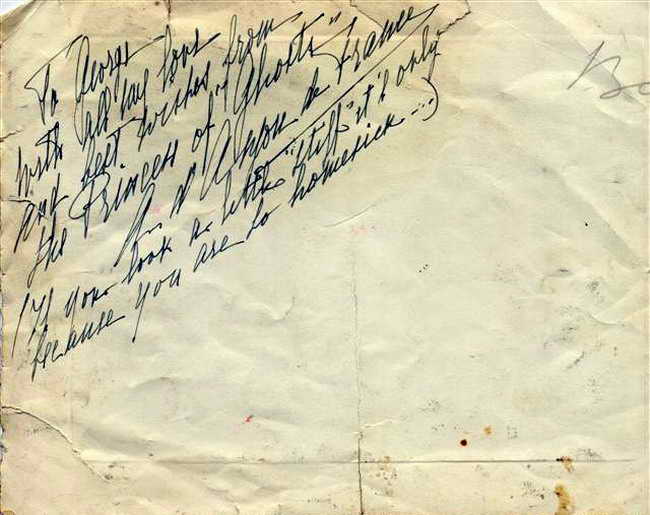 To George
with all my love
and best wishes from
the Princess of "Ghosts"
de France
(If you look a little "stiff" it's only
because you are so homesick --)